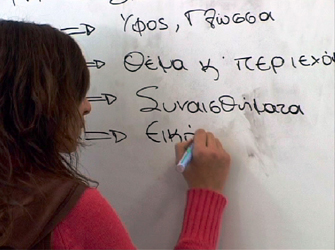 Ύφος, Γλώσσα
Θέμα κ' περιεχό
Συναισθήματα
Εική